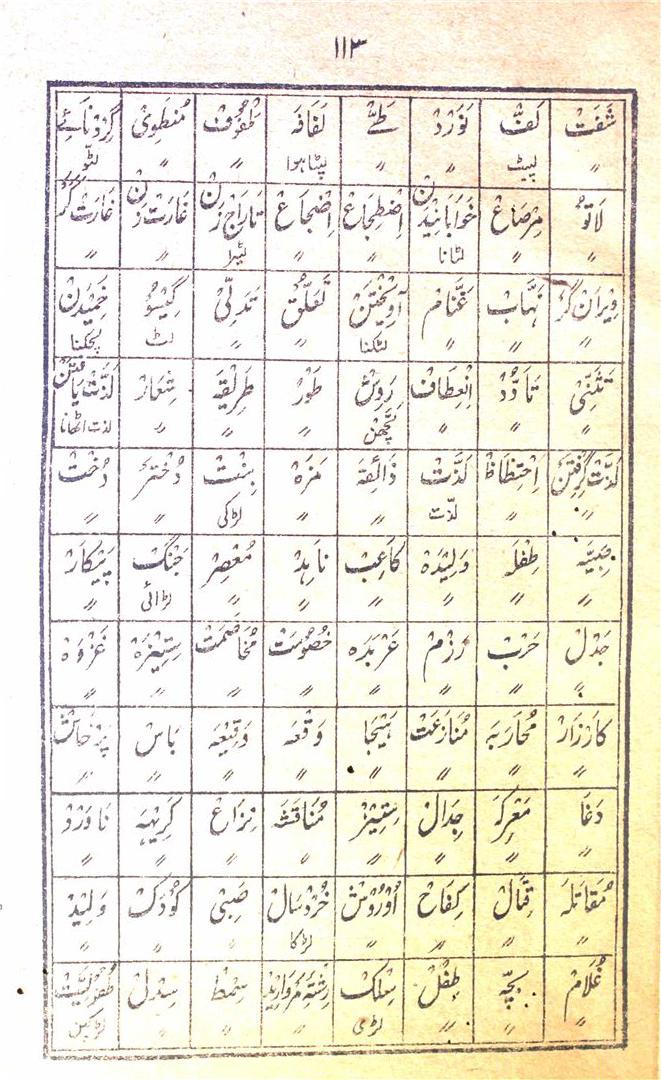 ۱۱۳
شَفَت لَفّ نَوَرْد طَےّ لفَافَہ مَلْفُوْف مُنطَوِیْ گِرْدْنَائے
〃 لپیٹ 〃 〃 لپٹا ہوا 〃 〃 لٹّو
لَاتُو مِرْصَاعْ خوَابَانِیْدَنْ اِضْطِجَاعْ اِضْجَاعْ تَارَاجْ زَنْ غَارَتْ زَنْ غَارَتْ گَرْ
〃 〃 لٹانا 〃 〃 لٹیرا 〃 〃
وِیْرَانْ گَرْ نَہَّابْ غَنَّامْ آوِیْخْتَنْ تَعَلُّقْ تَدَلِّیْ گِیْسُوْ خَمِیْدَنْ
〃 〃 〃 لٹکنا 〃 〃 لٹ لچکنا
تَثَنِّیْ تَاَوُّدْ اِنْعِطَافْ رَوِشْ طَوْرْ طَرِیْقَہ شِعَارْ لَذَّتْ یَافْتَنْ
〃 〃 〃 لچھن 〃 〃 〃 لذت اٹھانا
لَذَّتْ گِرِفْتَنْ اِحْتِظَاظْ لَذَّتْ ذَائِقَہ مَزَہْ بِنْتْ دُخْتَرْ دُخْتْ
〃 〃 لذّت 〃 〃 لڑکی 〃 〃
صَبِیَّہ طِفْلَہ وَلِیْدَہ کَاعِبْ نَاہِدْ مُعْصِرْ جَنْگْ پَیْکَارْ
〃 〃 〃 〃 〃 〃 لڑائی 〃
جَدَلْ حَرْبْ رَزْمْ عَرْبَدَہ خُصُوْمَتْ مُخَاصَمَتْ سِتِیْزَہْ غَزْوَہْ
〃 〃 〃 〃 〃 〃 〃 〃
کَارْزَارْ مُحَارَبَہ مُنَازَعَتْ ہَیْجَا وَقْعَہ وَقِیْعَہ بَاسْ پَرْخَاشْ
〃 〃 〃 〃 〃 〃 〃 〃
دَغَا مَعْرِکَہ جِدَالْ سِتِیْزْ مُنَاقَشَہ نِزَاعْ کَرِیْہَہ نَاوَرْدْ
〃 〃 〃 〃 〃 〃 〃 〃
مُقَاتَلَہ قِتَالْ کِفَاحْ خُرْدْسَالْ صَبِیْ کُوْدَکْ وَلِیْدْ
〃 〃 〃 〃 لڑکا 〃 〃 〃
غُلَامْ بچّہ طِفْلْ سِلْکْ رِشْتَہْ مُرْوَارِیْدْ سِمْطْ سِدْلْ طُفُوْلِیَّتْ
〃 〃 〃 لڑی 〃 〃 〃 لڑکپن